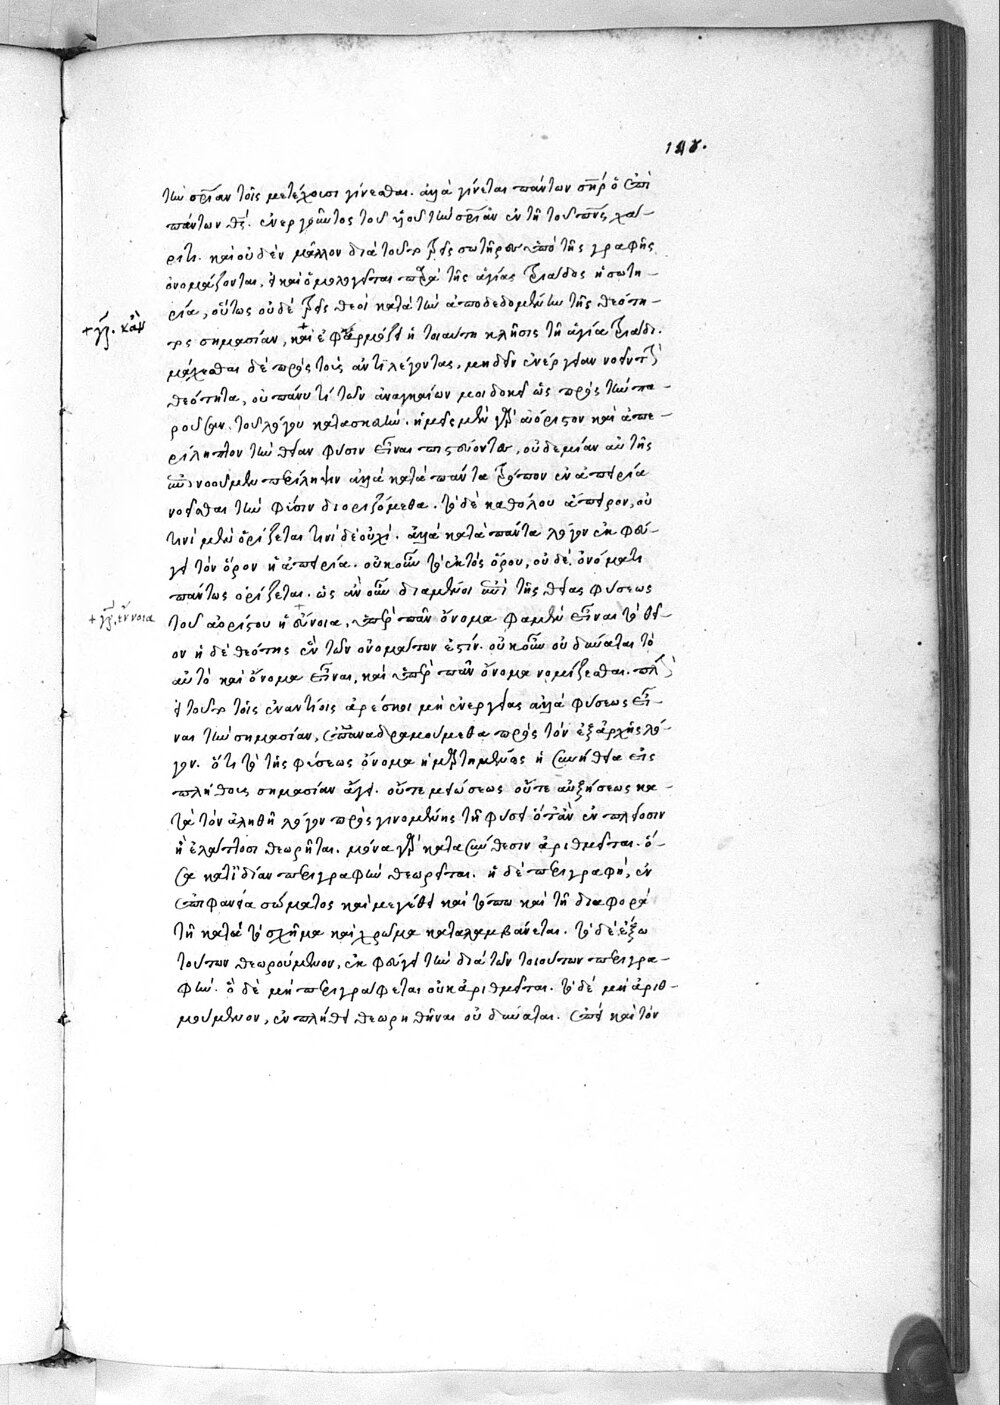 184.
τὴν σρίαν τοῖς μετέχουσι γίνεσθαι. ἀλλὰ γίνεται πάντων σηρ ὁ ἐπὶ
πάντων θς. ἐνεργοῦντος τοῦ υἱοῦ τὴν σρίαν ἐν τῇ τοῦ πνς χά-
ριτι. καὶ οὐδὲν μᾶλλον διὰ τοῦτο τρεῖς σωτῆρες ὑπὸ τῆς γραφῆς
ὀνομάζονται, εἰ καὶ ὁμολογεῖται παρὰ τῆς ἁγίας τριάδος ἡ σωτη-
ρία, οὕτως οὐδὲ τρεῖς θεοὶ κατὰ τὴν ἀποδεδομένην τῆς θεότη-
+ γρ. κἂν
τος σημασίαν, + καὶ ἐφαρμόζει ἡ τοιαύτη κλῆσις τῇ ἁγία τριάδι.
μάχεσθαι δὲ πρὸς τοὺς ἀντιλέγοντας, μὴ δεῖν ἐνέργειαν νοεῖν τὴν
θεότητα, οὐ πάνυ τί τῶν ἀναγκαίων μοι δοκεῖ ὡς πρὸς τὴν πα-
ροῦσαν τοῦ λόγου κατασκευήν. ἡμεῖς μὲν γὰρ ἀόριστον καὶ ἀπε-
ρίληπτον τὴν θείαν φύσιν εἶναι πιστεύοντες, οὐδεμίαν αὐτῆς
ἐπινοοῦμεν περίληψιν ἀλλὰ κατὰ πάντα τρόπον ἐν ἀπειρία
νοεῖσθαι τὴν φύσιν διοριζόμεθα. τὸ δὲ καθόλου ἄπειρον, οὐ
τινὶ μὲν ὁρίζεται τινὶ δὲ οὐχί. ἀλλὰ κατὰ πάντα λόγον ἐκφεύ-
γει τὸν ὅρον ἡ ἀπειρία. οὐκοῦν τὸ ἐκτὸς ὅρου, οὐδὲ ὀνόματι
πάντως ὁρίζεται. ὡς ἂν οὖν διαμένοι ἐπὶ τῆς θείας φύσεως
+ γρ. ἔννοια
τοῦ ἀορίστου ἡ + εὔνοια, ὑπὲρ πᾶν ὄνομα φαμὲν εἶναι τὸ θεῖ-
ον ἡ δὲ θεότης ἓν τῶν ὀνομάτων ἐστίν. οὐκοῦν οὐ δύναται τὸ
αὐτὸ καὶ ὄνομα εἶναι, καὶ ὑπὲρ πᾶν ὄνομα νομίζεσθαι. πλὴν
εἰ τοῦτο τοῖς ἐναντίοις ἀρέσκοι μὴ ἐνεργείας ἀλλὰ φύσεως εἶ-
ναι τὴν σημασίαν, ἐπαναδραμούμεθα πρὸς τὸν ἐξ ἀρχῆς λό-
γον. ὅτι τὸ τῆς φύσεως ὄνομα ἡμαρτημένως ἡ συνήθεια εἰς
πλήθους σημασίαν ἄγει. οὔτε μειώσεως οὔτε αὐξήσεως κα-
τὰ τὸν ἀληθῆ λόγον προσγινομένης τῇ φύσει ὅταν ἐν πλείοσιν
ἢ ἐλάττοσι θεωρῆται. μόνα γὰρ κατὰ σύνθεσιν ἀριθμεῖται. ὅ-
σα κατ ἰδίαν περιγραφὴν θεωρεῖται. ἡ δὲ περιγραφή, ἐν
ἐπιφανεία σώματος καὶ μεγέθει καὶ τόπω καὶ τῇ διαφορᾶ
τῇ κατὰ τὸ σχῆμα καὶ χρῶμα καταλαμβάνεται. τὸ δὲ ἔξω
τούτων θεωρούμενον, ἐκφεύγει τὴν διὰ τῶν τοιούτων περιγρα-
φήν. ὃ δὲ μὴ περιγράφεται οὐκ ἀριθμεῖται. τὸ δὲ μὴ ἀριθ-
μούμενον, ἐν πλήθει θεωρηθῆναι οὐ δύναται. ἐπεὶ καὶ τὸν